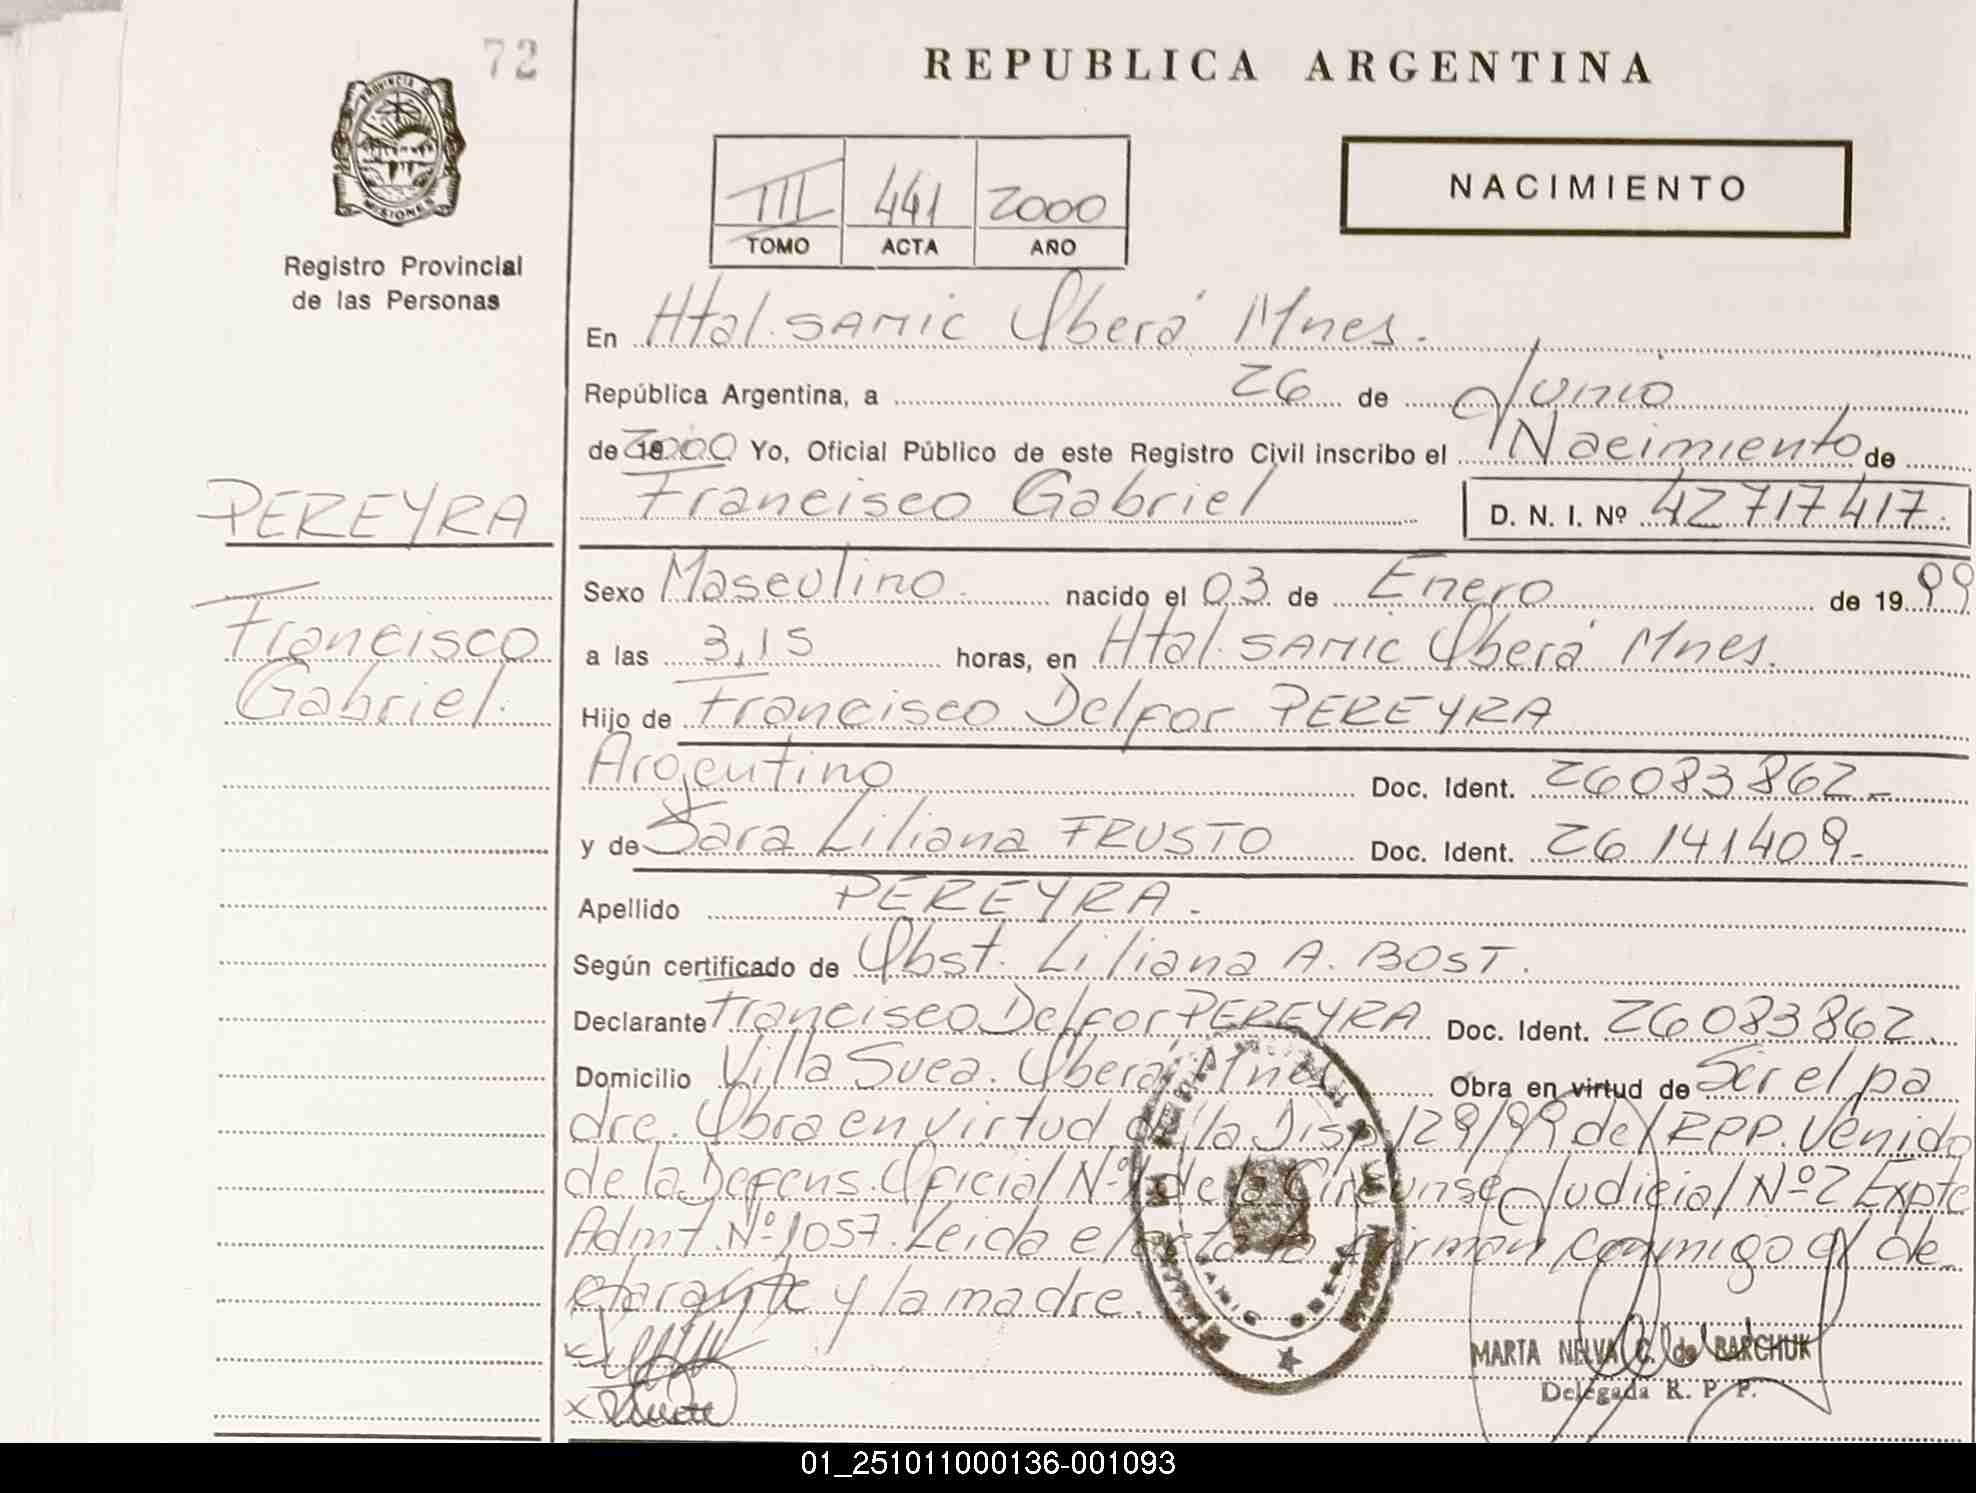 72
REPUBLICA ARGENTINA
PROVINCIA DE
MISIONES
Registro Provincial
de las Personas
III 441 2000
TOMO ACTA AÑO
NACIMIENTO
En Htal. SAMIC Oberá Mnes.
República Argentina, a 26 de Junio
de 2000 Yo, Oficial Público de este Registro Civil inscribo el Nacimiento de
Francisco Gabriel D. N. I. Nº 42717417.
PEREYRA
Francisco
Gabriel.
Sexo Masculino. nacido el 03 de Enero de 1999
a las 3,15 horas, en Htal. SAMIC Oberá Mnes.
Hijo de Francisco Delfor PEREYRA
Argentino Doc. Ident. 26083862-
y de Sara Liliana FRUSTO Doc. Ident. 26 141409-
Apellido PEREYRA.
Según certificado de Obst. Liliana A. BOST.
Declarante Francisco Delfor PEREYRA Doc. Ident. 26083862.
Domicilio Villa Suea. Oberá Mnes Obra en virtud de Ser el pa
dre. Obra en virtud de la Disp. 129/99 del RPP. Venido
de la Defens. Oficial Nº1 de la Circunsc Judicial Nº2 Expte
Admt. Nº 1057. Leida el acta la firman conmigo el de
clarante y la madre.
MARTA NELVA C. de BARCHUK
Delegada R. P. P.
01_251011000136-001093